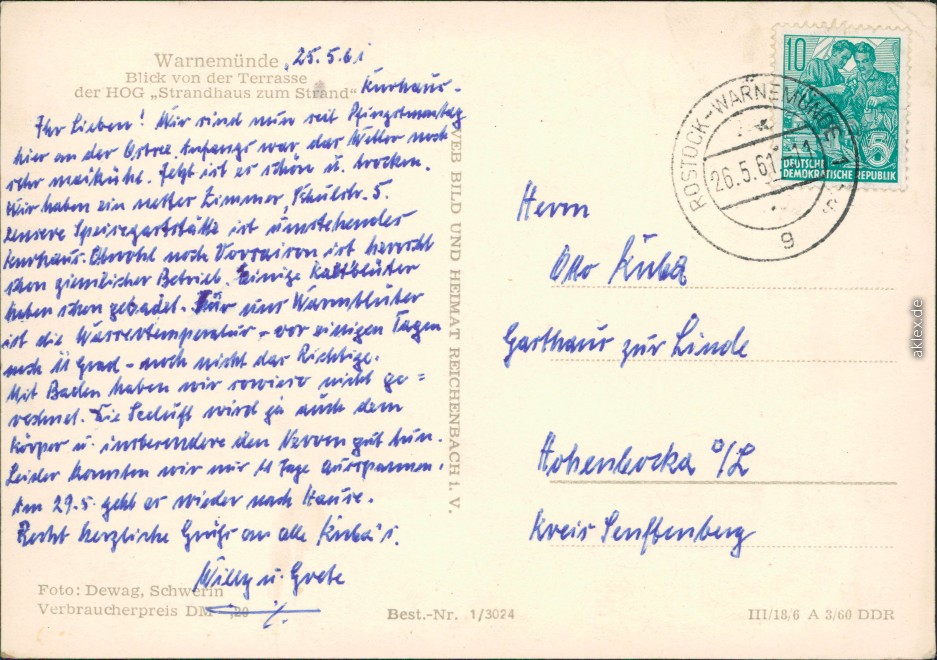 Warnemünde
25.5.61
Blick von der Terrasse
der HOG „Strandhaus zum Strand"
Kurhaus.
Ihr Lieben! Wir sind nun seit Pfingstmontag
hier an der Ostsee. Anfangs war das Wetter noch
sehr maikühl. Jetzt ist es schön u. trocken.
Wir haben ein nettes Zimmer, Schulstr. 5.
Unsere Speisegaststätte ist umstehendes
Kurhaus. Obwohl noch Vorsaison ist herrscht
schon ziemlicher Betrieb. Einige Kaltblüter
haben schon gebadet. Für uns Warmblüter
ist die Wassertemperatur - vor einigen Tagen
noch 11 Grad - noch nicht das Richtige.
Mit Baden haben wir sowieso nicht ge=
rechnet. Die Seeluft wird ja auch dem
Körper u. insbesondere den Nerven gut tun.
Leider konnten wir nur 11 Tage ausspannen.
Am 29.5. geht es wieder nach Hause.
Recht herzliche Grüße an alle Kuba's.
Willy u. Grete
Foto: Dewag, Schwerin
Verbraucherpreis DM -,20
Best.-Nr. 1/3024
III/18/6 A 3/60 DDR
VEB BILD UND HEIMAT REICHENBACH i. V.
10
DEUTSCHE
DEMOKRATISCHE REPUBLIK
5
ROSTOCK-WARNEMÜNDE 1
26.5.61-11
g
Herrn
Otto Kuba
Gasthaus zur Linde
Hohenbocka O/L
Kreis Senftenberg
akpool.de